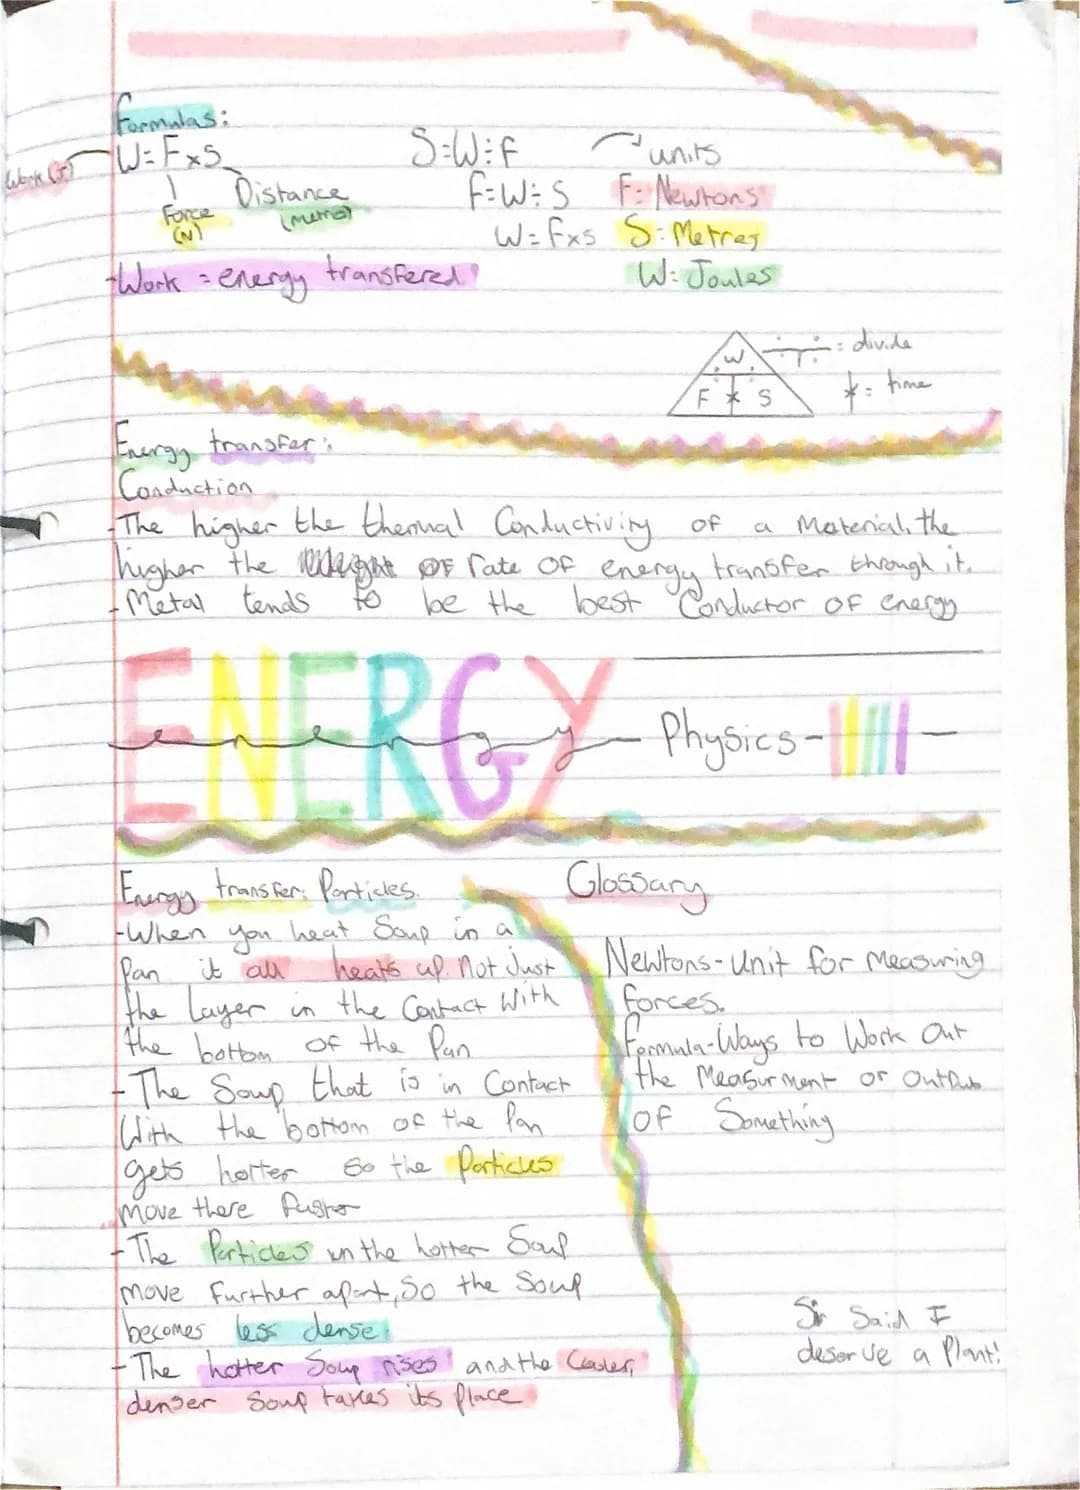 Formulas:
W=F×S
Work (J)
Force
(N)
Distance
(metre)
S=W÷F
F=W÷S
W=F×S
units
F: Newtons
S: Metres
W: Joules
-Work = energy transfered!
W
F * S
÷ = divide
* = time
Energy transfer:
Conduction
-The higher the thermal Conductivity of a Material, the
higher the rate OF energy transfer through it.
-Metal tends to be the best Conductor OF energy
ENERGY
energy - Physics -
Energy transfer: Particles.
-When you heat Soup in a
Pan it all heats up. Not Just
the Layer in the Contact With
the bottom OF the Pan
-The Soup that is in Contact
With the bottom OF the Pan
gets hotter so the Particles
Move there faster
-The Particles in the hotter Soup
move further apart, so the Soup
becomes less dense.
-The hotter Soup rises and the Cooler,
denser Soup takes its Place
Glossary
Newtons-Unit for Measuring
forces.
Formula-Ways to Work Out
the Measurment or Output
OF Something
Sir Said I
deserve a Plant!